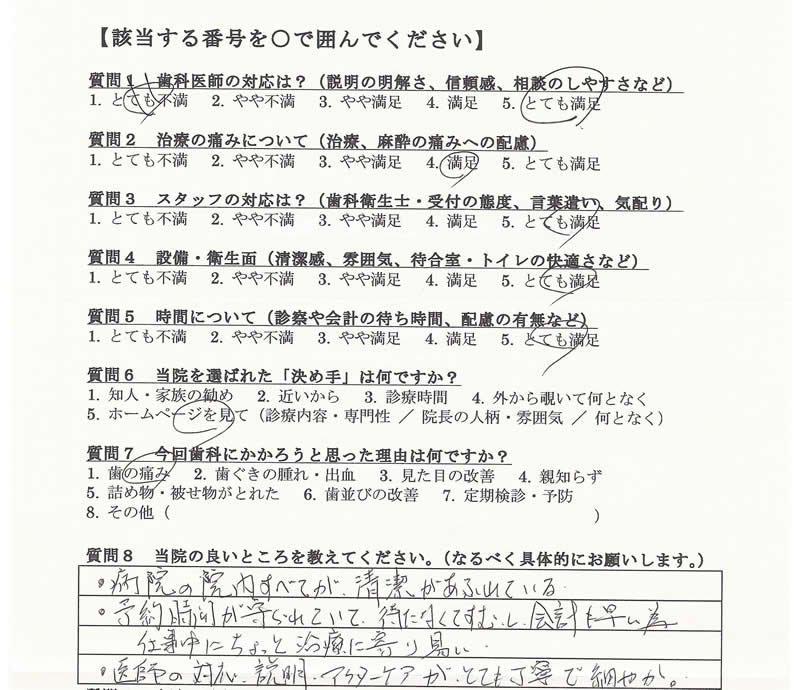 【該当する番号を○で囲んでください】
質問1　歯科医師の対応は？（説明の明解さ、信頼感、相談のしやすさなど）
1. とても不満　2. やや不満　3. やや満足　4. 満足　5. とても満足
質問2　治療の痛みについて（治療、麻酔の痛みへの配慮）
1. とても不満　2. やや不満　3. やや満足　4. 満足　5. とても満足
質問3　スタッフの対応は？（歯科衛生士・受付の態度、言葉遣い、気配り）
1. とても不満　2. やや不満　3. やや満足　4. 満足　5. とても満足
質問4　設備・衛生面（清潔感、雰囲気、待合室・トイレの快適さなど）
1. とても不満　2. やや不満　3. やや満足　4. 満足　5. とても満足
質問5　時間について（診察や会計の待ち時間、配慮の有無など）
1. とても不満　2. やや不満　3. やや満足　4. 満足　5. とても満足
質問6　当院を選ばれた「決め手」は何ですか？
1. 知人・家族の勧め　2. 近いから　3. 診療時間　4. 外から覗いて何となく
5. ホームページを見て（診療内容・専門性 ／ 院長の人柄・雰囲気 ／ 何となく）
質問7　今回歯科にかかろうと思った理由は何ですか？
1. 歯の痛み　2. 歯ぐきの腫れ・出血　3. 見た目の改善　4. 親知らず
5. 詰め物・被せ物がとれた　6. 歯並びの改善　7. 定期検診・予防
8. その他（　　　　　　　　　　）
質問8　当院の良いところを教えてください。（なるべく具体的にお願いします。）
・病院の院内すべてが、清潔があふれている。
・予約時間が守られていて、待たなくてすむし、会計も早い為
仕事中にちょっと治療に寄り易い。
・医師の対応、説明、アフターケアが、とても丁寧で細やか。